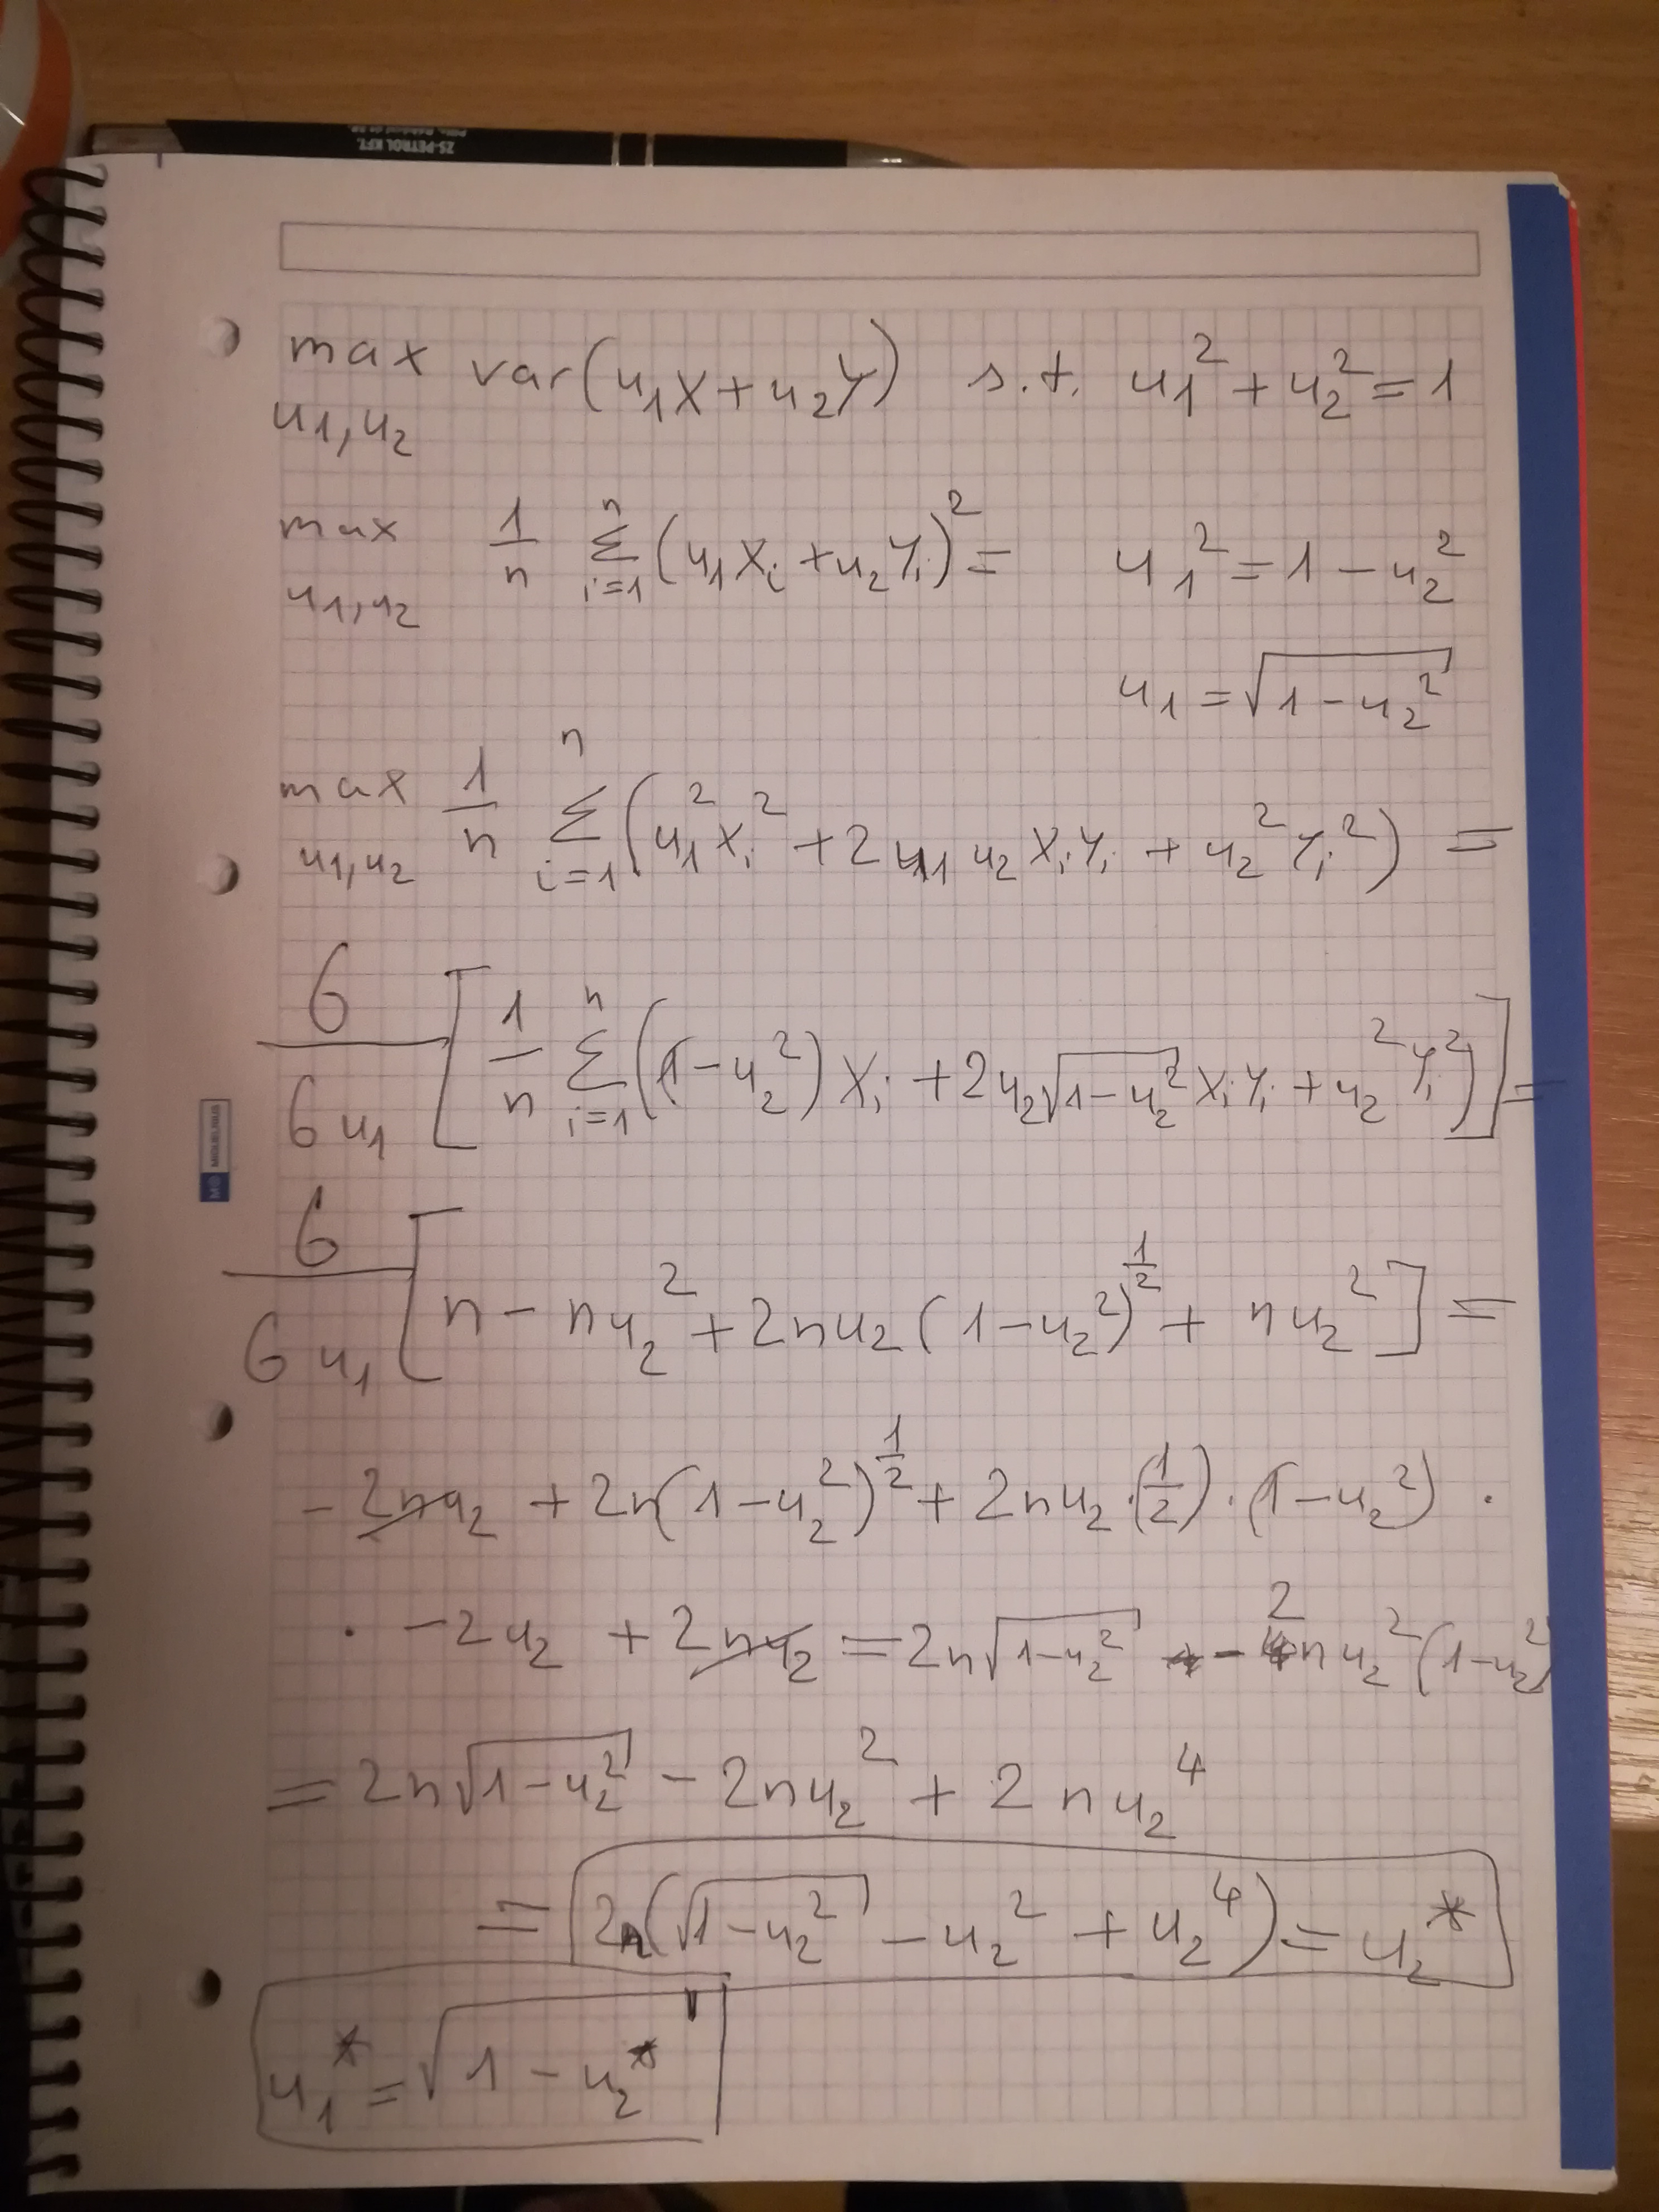 ZS-PETROL KFT.
max var(u₁X+u₂Y) s.t. u₁²+u₂²=1
u₁,u₂
max 1/n Σ_{i=1}^{n} (u₁Xᵢ+u₂Yᵢ)² = u₁²=1-u₂²
u₁,u₂
u₁=√(1-u₂²)
max 1/n Σ_{i=1}^{n} (u₁²Xᵢ²+2u₁u₂XᵢYᵢ+u₂²Yᵢ²) =
u₁,u₂
6/6u₁ [1/n Σ_{i=1}^{n} ((1-u₂²)Xᵢ+2u₂√(1-u₂²)XᵢYᵢ+u₂²Yᵢ²)] =
6/6u₁ [n-nu₂²+2nu₂(1-u₂²)^{1/2}+nu₂²] =
-2nu₂+2n(1-u₂²)^{1/2}+2nu₂·(1/2)·(1-u₂²)·
·-2u₂+2nu₂=2n√(1-u₂²)-2nu₂²(1-u₂²)
=2n√(1-u₂²)-2nu₂²+2nu₂⁴
=2n(√(1-u₂²)-u₂²+u₂⁴)=u₂*
u₁*=√(1-u₂*)
MIQUELRIUS